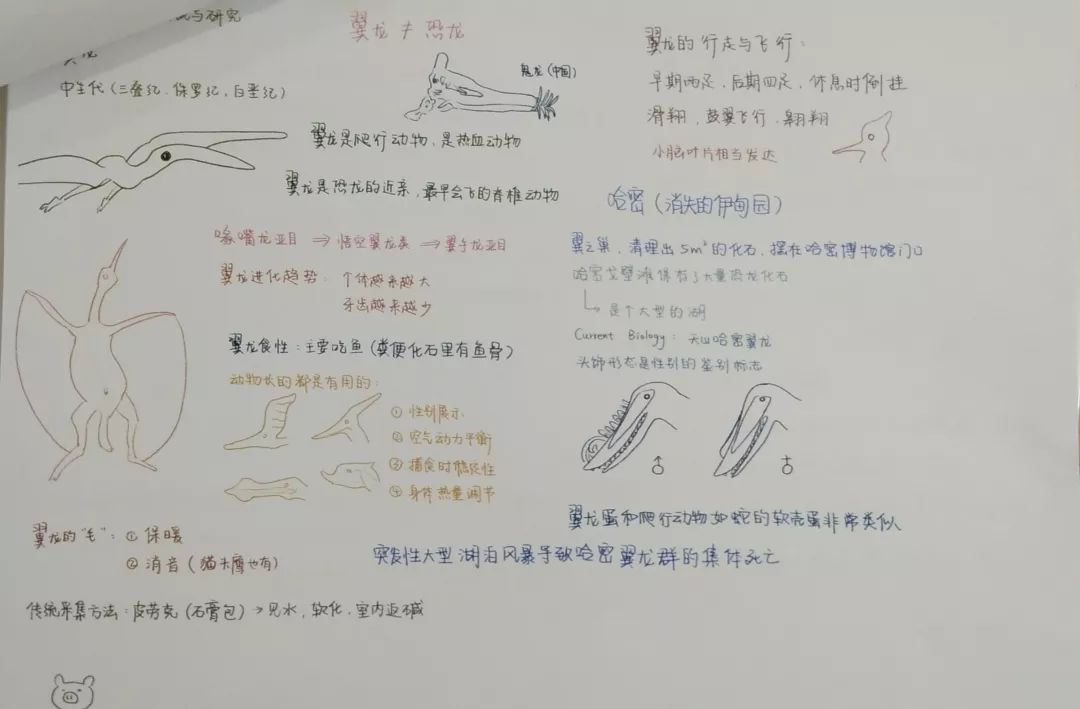 与研究
翼龙≠恐龙
中生代(三叠纪、侏罗纪、白垩纪)
鬼龙(中国)
翼龙是爬行动物,是热血动物
翼龙是恐龙的近亲,最早会飞的脊椎动物
喙嘴龙亚目 ⇒ 悟空翼龙类 ⇒ 翼手龙亚目
翼龙进化趋势:个体越来越大
牙齿越来越少
翼龙食性:主要吃鱼(粪便化石里有鱼骨)
动物长的都是有用的:
① 性别展示
② 空气动力平衡
③ 捕食时稳定性
④ 身体热量调节
翼龙的“毛”:① 保暖
② 消音(猫头鹰也有)
传统采集方法:皮劳克(石膏包)→见水,软化,室内
翼龙的行走与飞行:
早期两足,后期四足,休息时倒挂
滑翔,鼓翼飞行,翱翔
小脑叶片相当发达
哈密(消失的伊甸园)
翼之巢,清理出5m²的化石,摆在哈密博物馆门口
哈密戈壁滩保存了大量恐龙化石
↳是个大型的湖
Current Biology:天山哈密翼龙
头饰形态是性别的鉴别标志
♂
♀
翼龙蛋和爬行动物如蛇的软壳蛋非常类似
突发性大型湖泊风暴导致哈密翼龙群的集体死亡